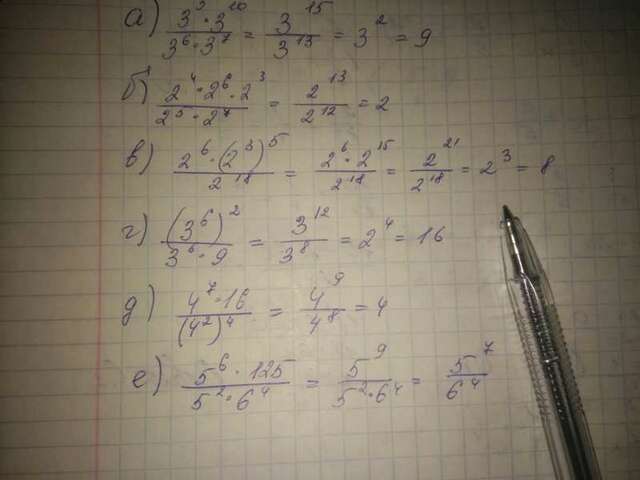 а) (3⁵ · 3¹⁰)/(3⁶ · 3⁷) = 3¹⁵/3¹³ = 3² = 9
б) (2⁴ · 2⁶ · 2³)/(2⁵ · 2⁷) = 2¹³/2¹² = 2
в) (2⁶ · (2³)⁵)/2¹⁸ = (2⁶ · 2¹⁵)/2¹⁸ = 2²¹/2¹⁸ = 2³ = 8
г) (3⁶)²/(3⁶ · 9) = 3¹²/3⁸ = 2⁴ = 16
д) (4⁷ · 16)/(4²)⁴ = 4⁹/4⁸ = 4
е) (5⁶ · 125)/(5² · 6⁴) = 5⁹/(5² · 6⁴) = 5⁷/6⁴